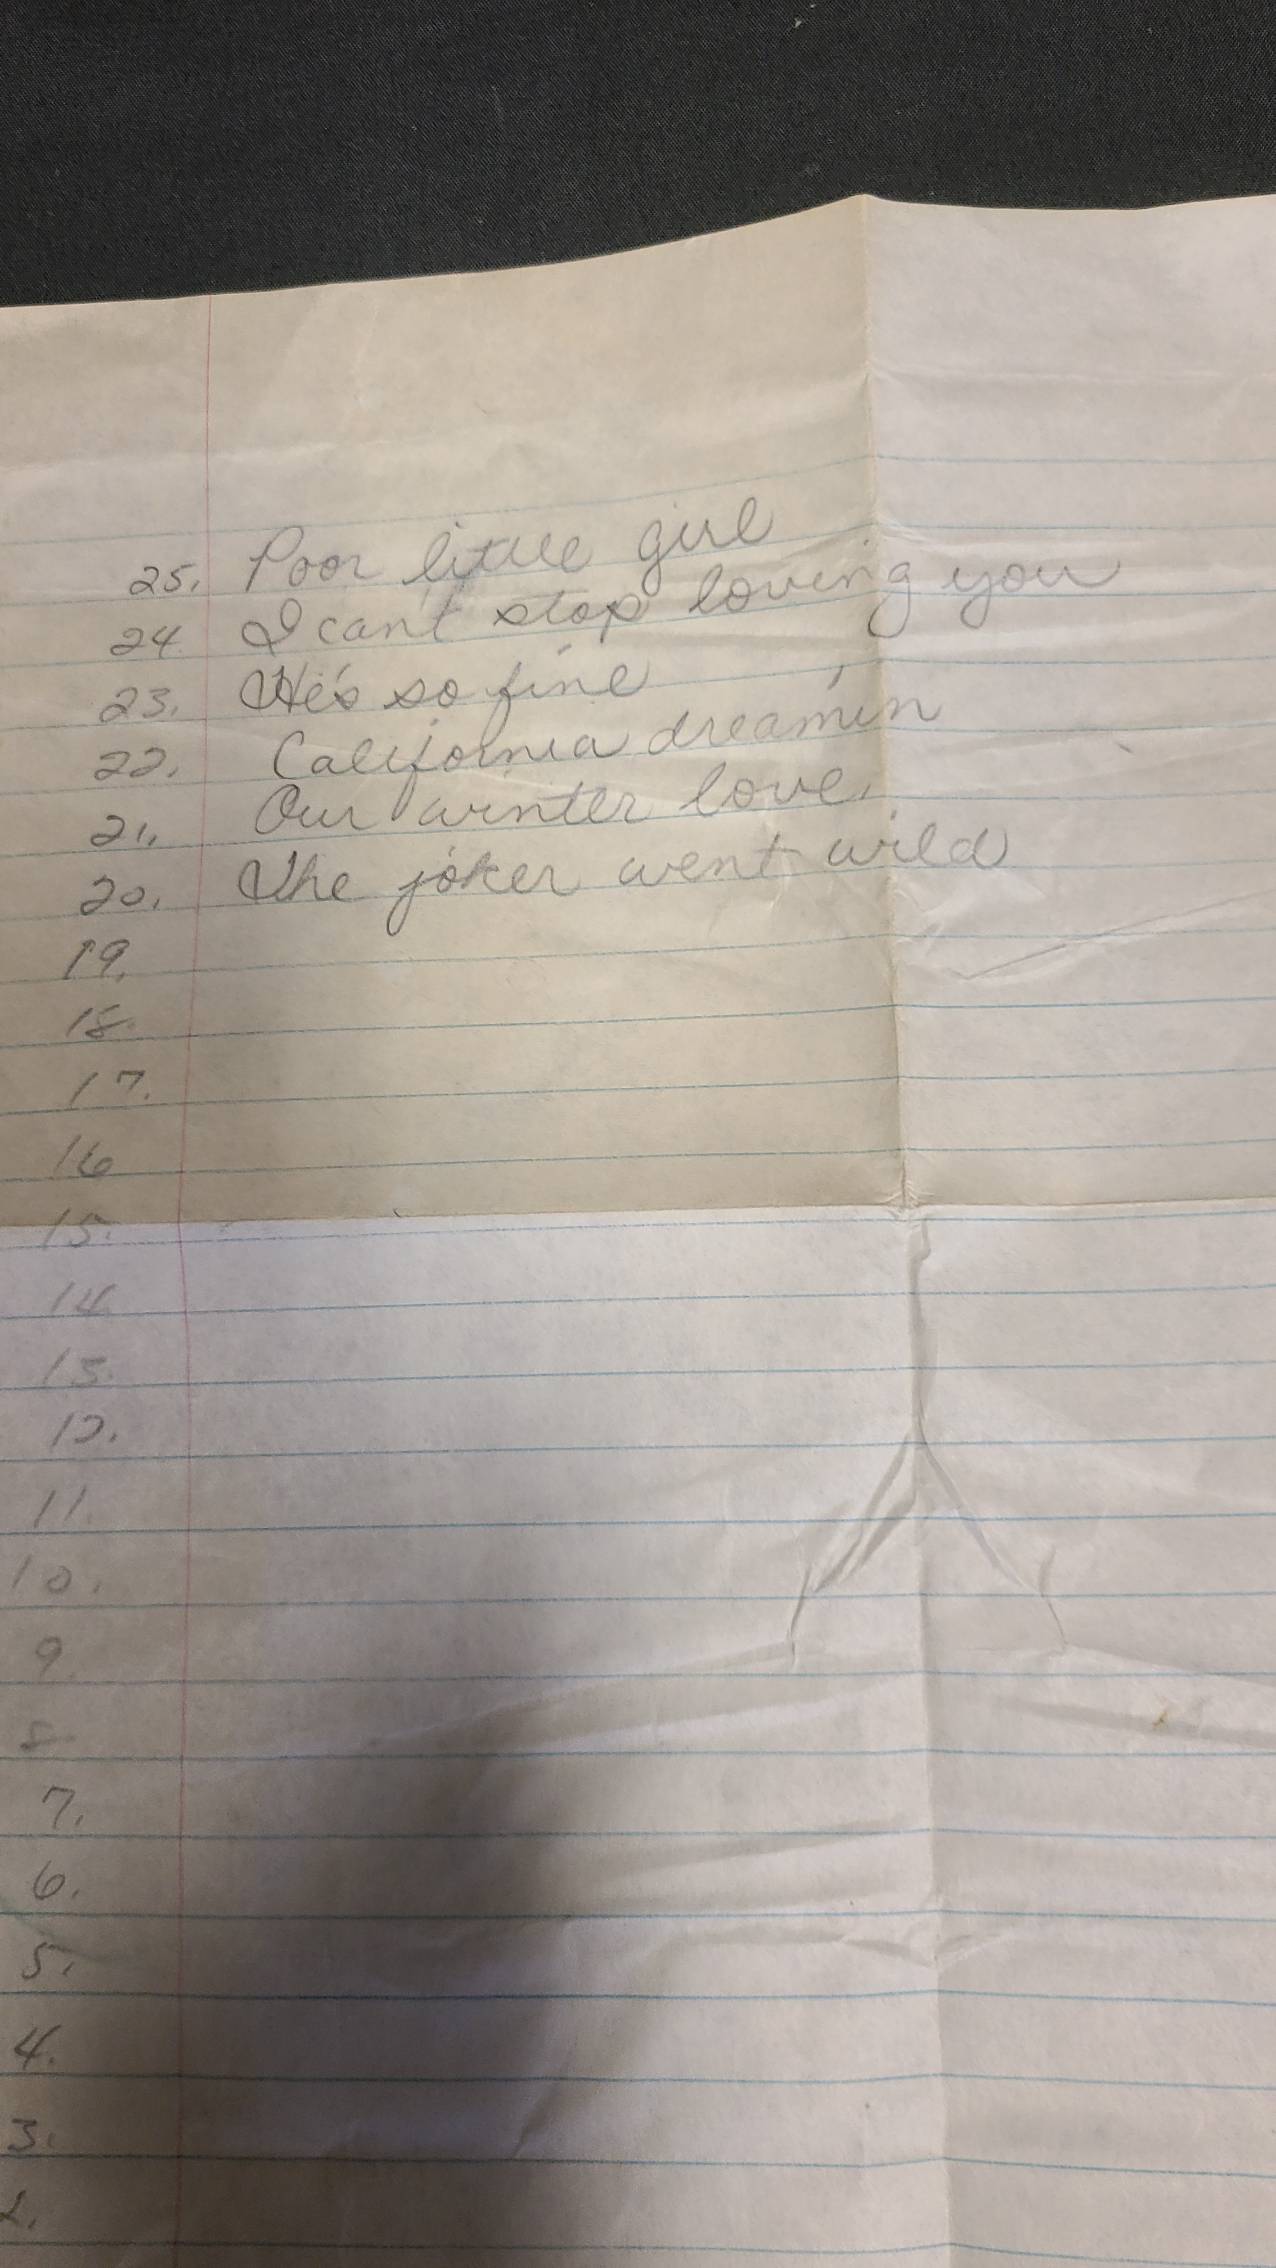 25. Poor little girl
24. I can't stop loving you
23. He's so fine
22. California dreamin'
21. Our winter love.
20. The joker went wild
19.
18.
17.
16
15.
14.
13.
12.
11.
10.
9.
8.
7.
6.
5.
4.
3.
2.